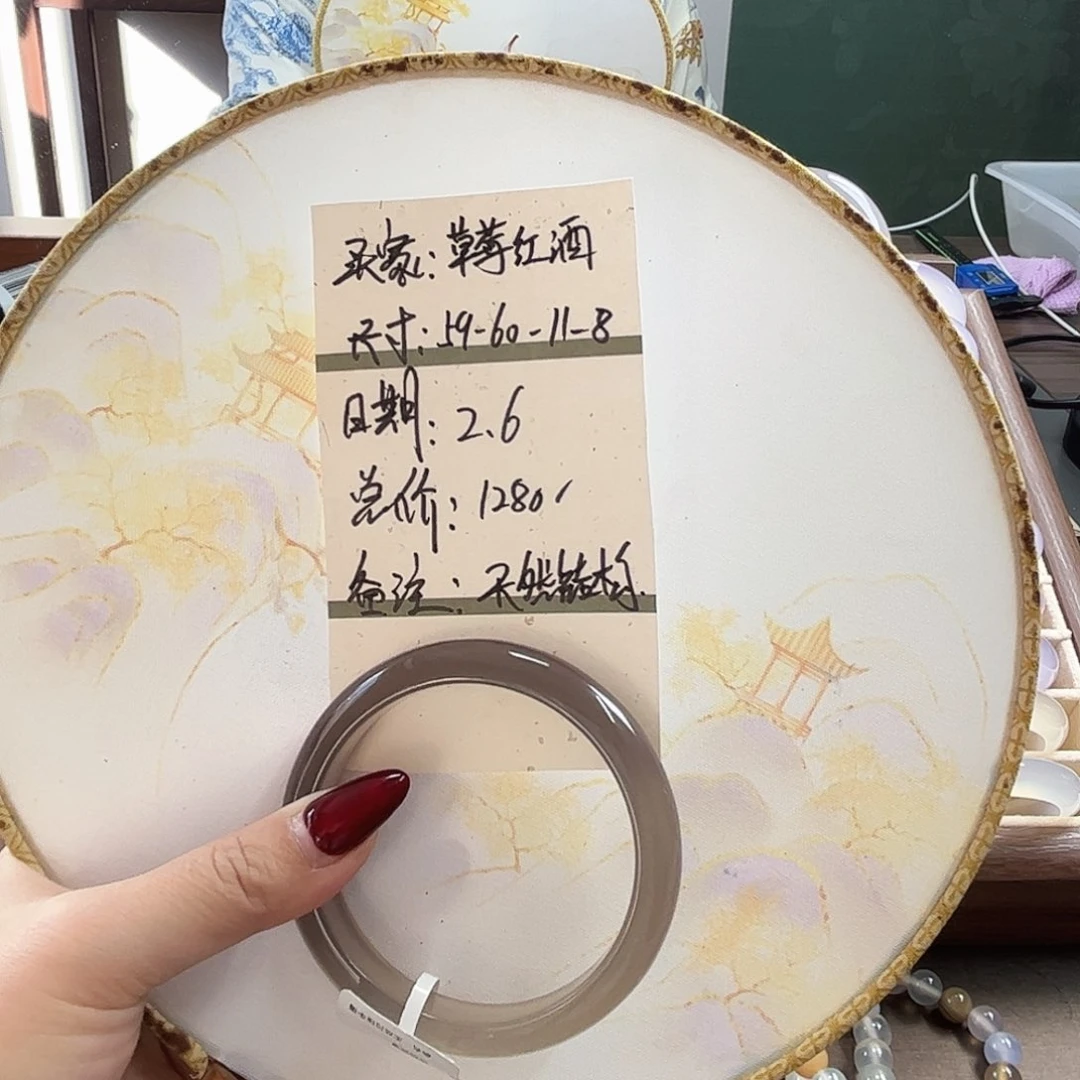 买家:草莓红酒
尺寸:59-60-11-8
日期:2.6
总价:1280
备注:天然结构.